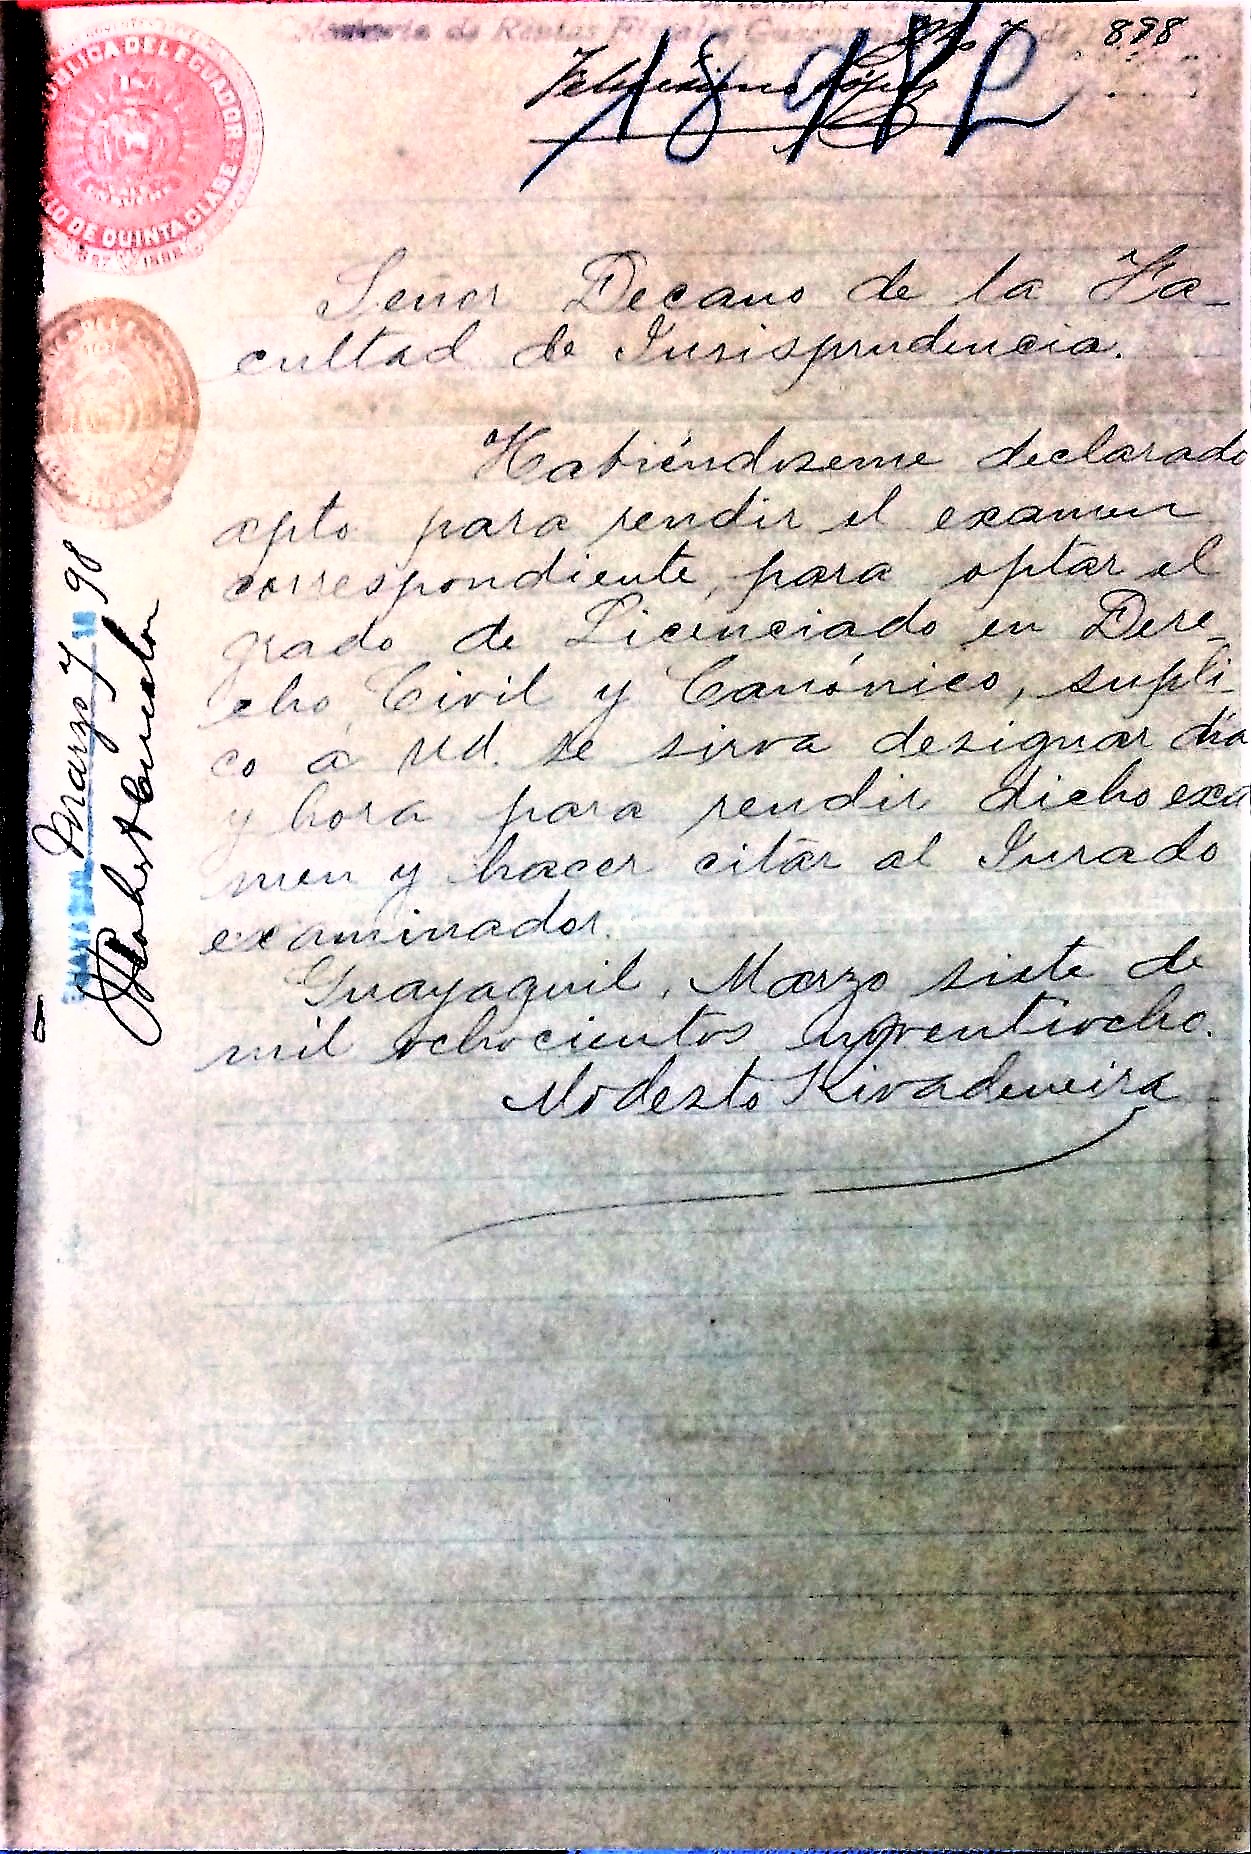 Colecturía de Rentas Fiscales Guayaquil
de
898
REPÚBLICA DEL ECUADOR
SELLO DE QUINTA CLASE
Señor Decano de la Fa-
cultad de Jurisprudencia.
Habiéndoseme declarado
apto para rendir el examen
correspondiente, para optar el
grado de Licenciado en Dere-
cho Civil y Canónico, supli-
co á Ud. se sirva designar día
y hora para rendir dicho exa
men y hacer citar al Jurado
examinador.
Guayaquil, Marzo siete de
mil ochocientos noventiocho.
Modesto Rivadeneira
Marzo 7 98